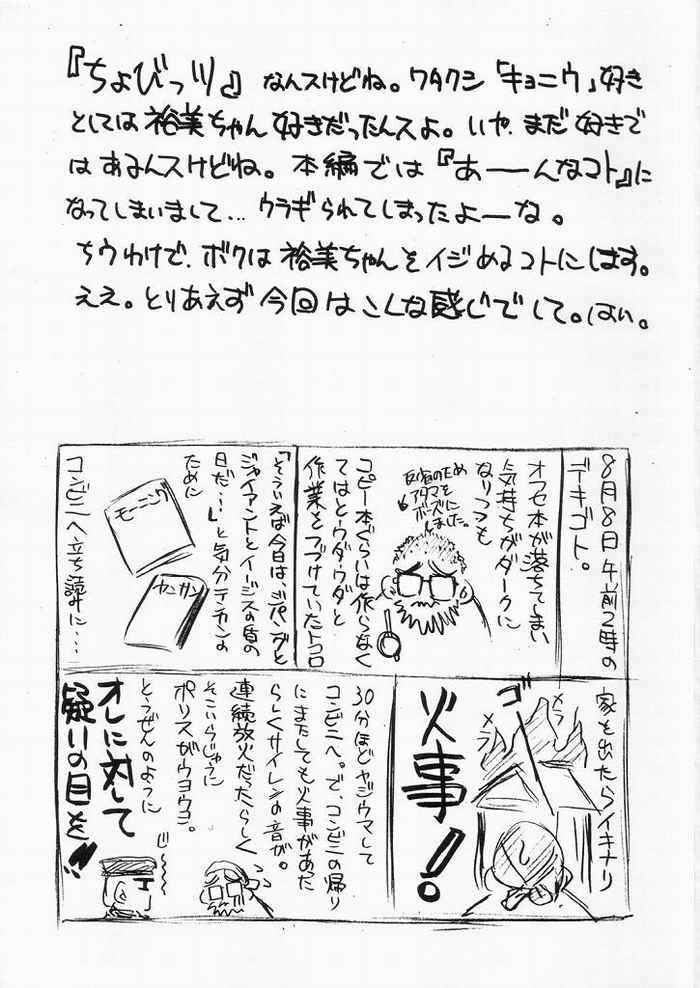 『ちょびっツ』なんスけどね。ワタクシ「キョニウ」好き
としては裕美ちゃん好きだったんスよ。いや、まだ好きで
はあるんスけどね。本編では『あーーんなコト』に
なってしまいまして…ウラギられてしまったよーな。
ちうわけで、ボクは裕美ちゃんをイジめるコトにしはす。
ええ。とりあえず今回はこんな感じでして。はい。
8月8日午前2時の
デキゴト。
オフセ本が落ちてしまい
気持ちがダークに
なりつつも
反省のため
アタマを
ボーズに
しました。
コピー本ぐらいは作らなく
てはとウダウダと
作業をつづけていたトコロ
「そういえば今日は、ジパングと
ジャイアントとイージスの盾の
日だ…」と気分テンカンの
ために
モーニング
ヤンサン
コンビニへ立ち読みに…
家を出たらイキナリ
メラ
ゴー
メラ
火事!
30分ほどヤジウマして
コンビニへ。で、コンビニの帰り
にまたしても火事があった
らしくサイレンの音が。
連続放火だったらしく
そこいらじゅうに
ポリスがウヨウヨ。
とうぜんのように
オレに対して
疑いの目を!!